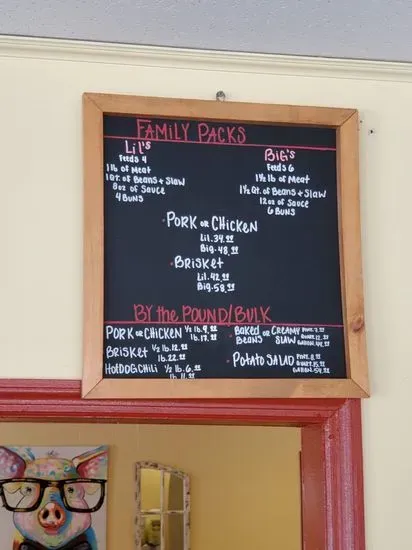 FAMILY PACKS
Lil's
Feeds 4
1 lb of Meat
1 QT. of Beans & Slaw
8oz of Sauce
4 Buns
BIG's
Feeds 6
1 1/2 lb of Meat
1 1/2 QT. of Beans & Slaw
12 oz of Sauce
6 Buns
PORK OR CHICKEN
Lil. 34.99
Big. 48.99
BRISKET
Lil. 42.99
Big. 58.99
BY the POUND/BULK
PORK OR CHICKEN 1/2 lb. 9.99
lb. 17.99
BRISKET 1/2 lb. 12.99
lb. 22.99
HotDOG CHILI 1/2 lb. 6.99
lb. 11.99
BAKED BEANS OR CREAMY SLAW PINT. 7.99
QUART. 12.99
GALLON. 44.99
POTATO SALAD PINT. 8.99
QUART. 15.99
GALLON. 54.99